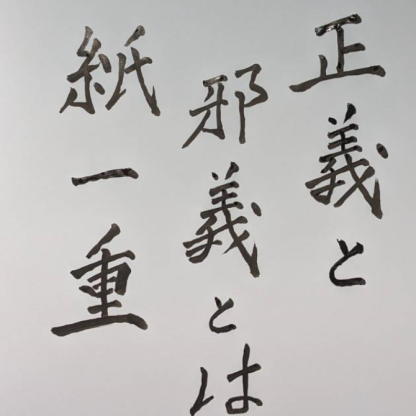 正義と
邪義とは
紙一重